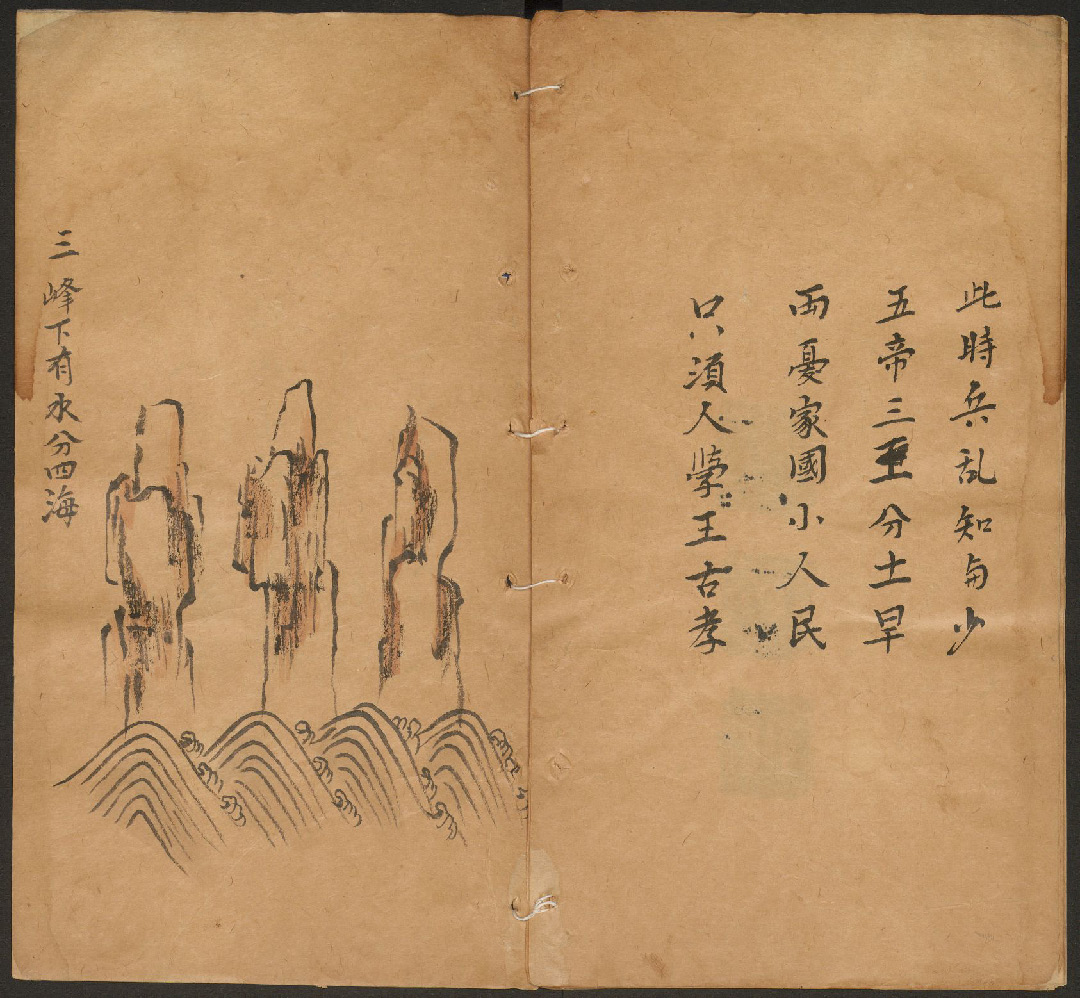 此時兵乱知多少
五帝三王分土早
雨憂家國小人民
只須人學王古孝
三峰下有水分四海